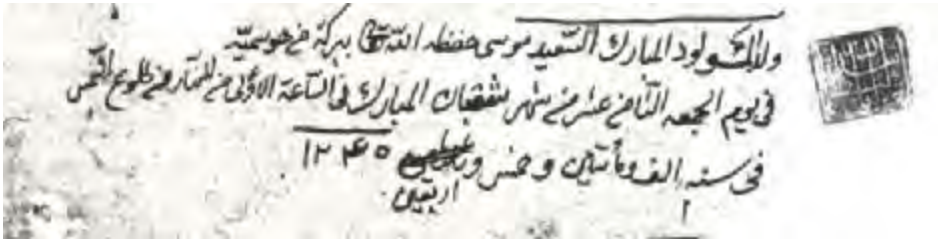 ولد المولود المبارك السعيد موسى حفظه الله ببركة من هو سميه
في يوم الجمعه الثامن عشر من شهر شعبان المبارك في الساعة الاولى من النهار من طلوع الشمس
في سنه الف ومأتين وخمس و ١٢۴٥
اربعين